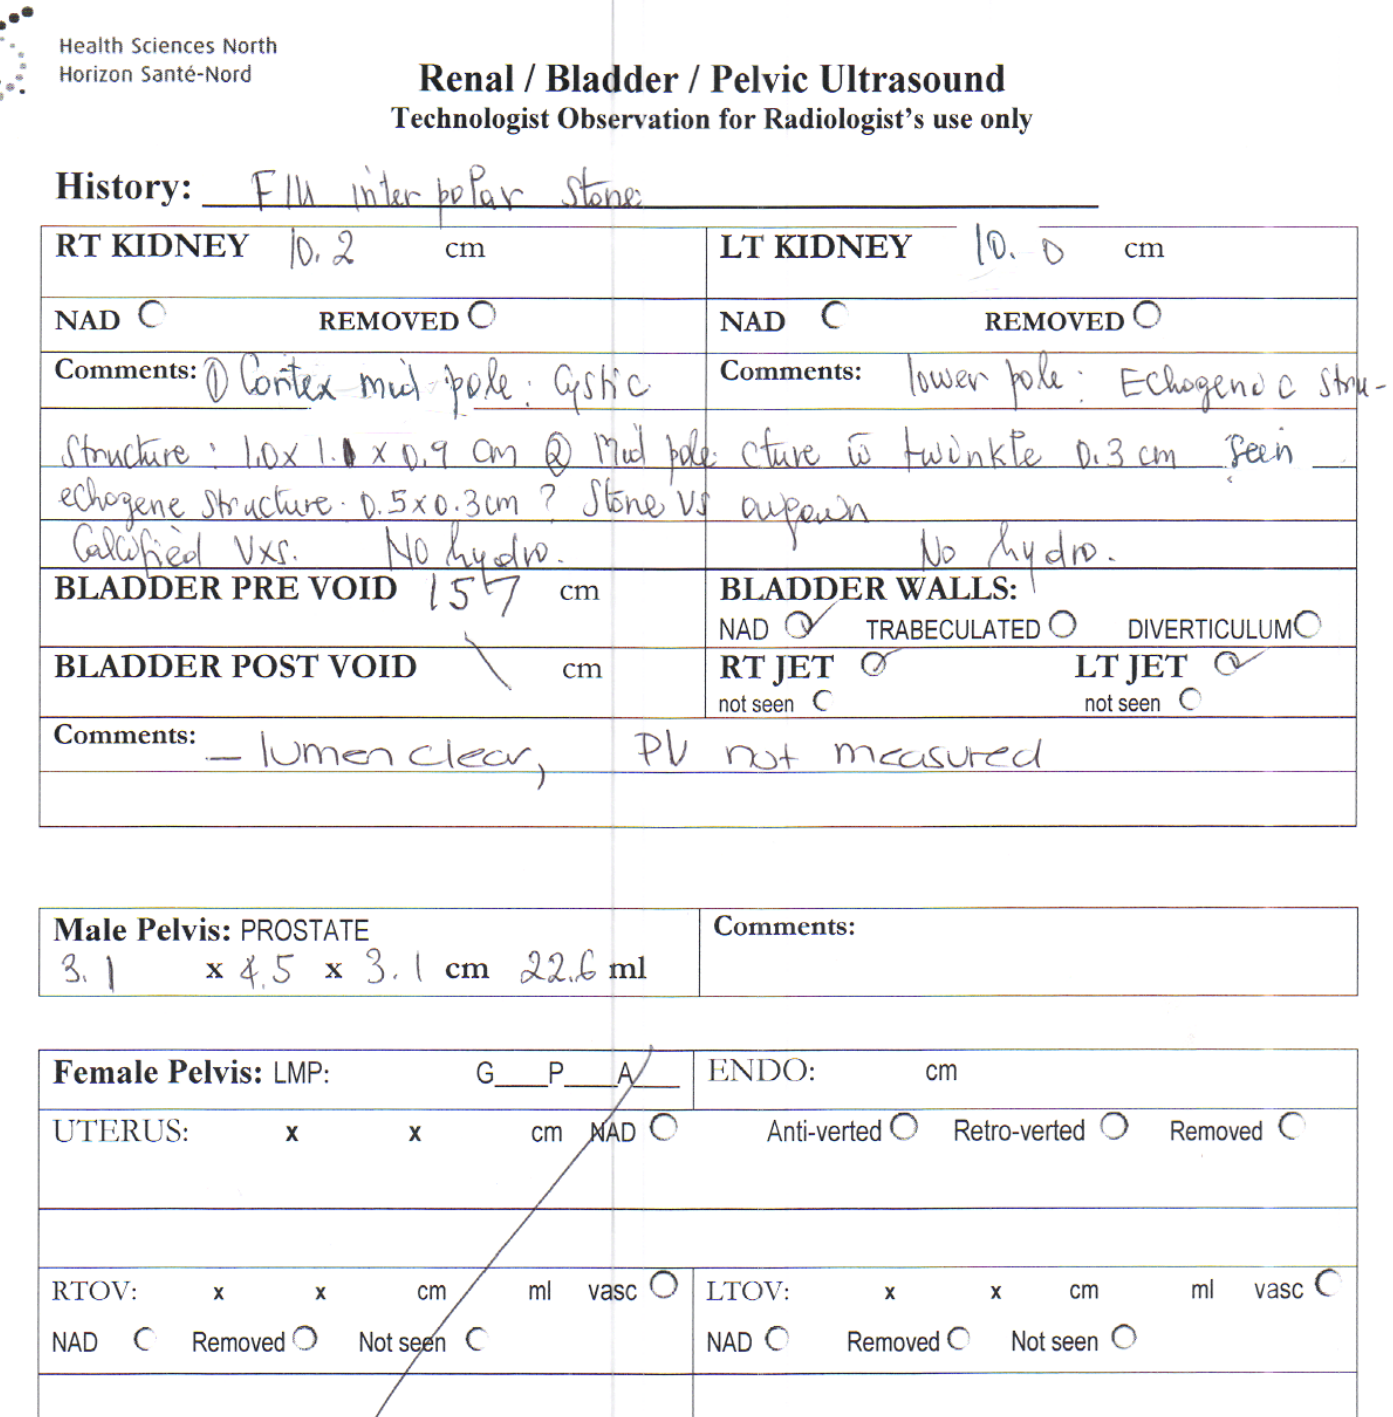 Health Sciences North
Horizon Santé-Nord
Renal / Bladder / Pelvic Ultrasound
Technologist Observation for Radiologist's use only
History: F/U interpolar stone
RT KIDNEY 10.2 cm
LT KIDNEY 10.0 cm
NAD REMOVED
NAD REMOVED
Comments: ① Cortex mid pole: Cystic
structure: 1.0 x 1.1 x 0.9 cm ② Mid pole:
echogene structure. 0.5x0.3cm ? Stone vs
Calcified vxs. No hydro.
Comments: lower pole: Echogenic stru-
cture w̄ twinkle 0.3 cm seen
No hydro.
BLADDER PRE VOID 157 cm
BLADDER WALLS:
NAD ✓ TRABECULATED DIVERTICULUM
BLADDER POST VOID \ cm
RT JET ✓ LT JET ✓
not seen not seen
Comments: – lumen clear, PV not measured
Male Pelvis: PROSTATE
3.1 x 4.5 x 3.1 cm 22.6 ml
Comments:
Female Pelvis: LMP: G___P___A___
ENDO: cm
UTERUS: x x cm NAD
Anti-verted Retro-verted Removed
RTOV: x x cm ml vasc
NAD Removed Not seen
LTOV: x x cm ml vasc
NAD Removed Not seen